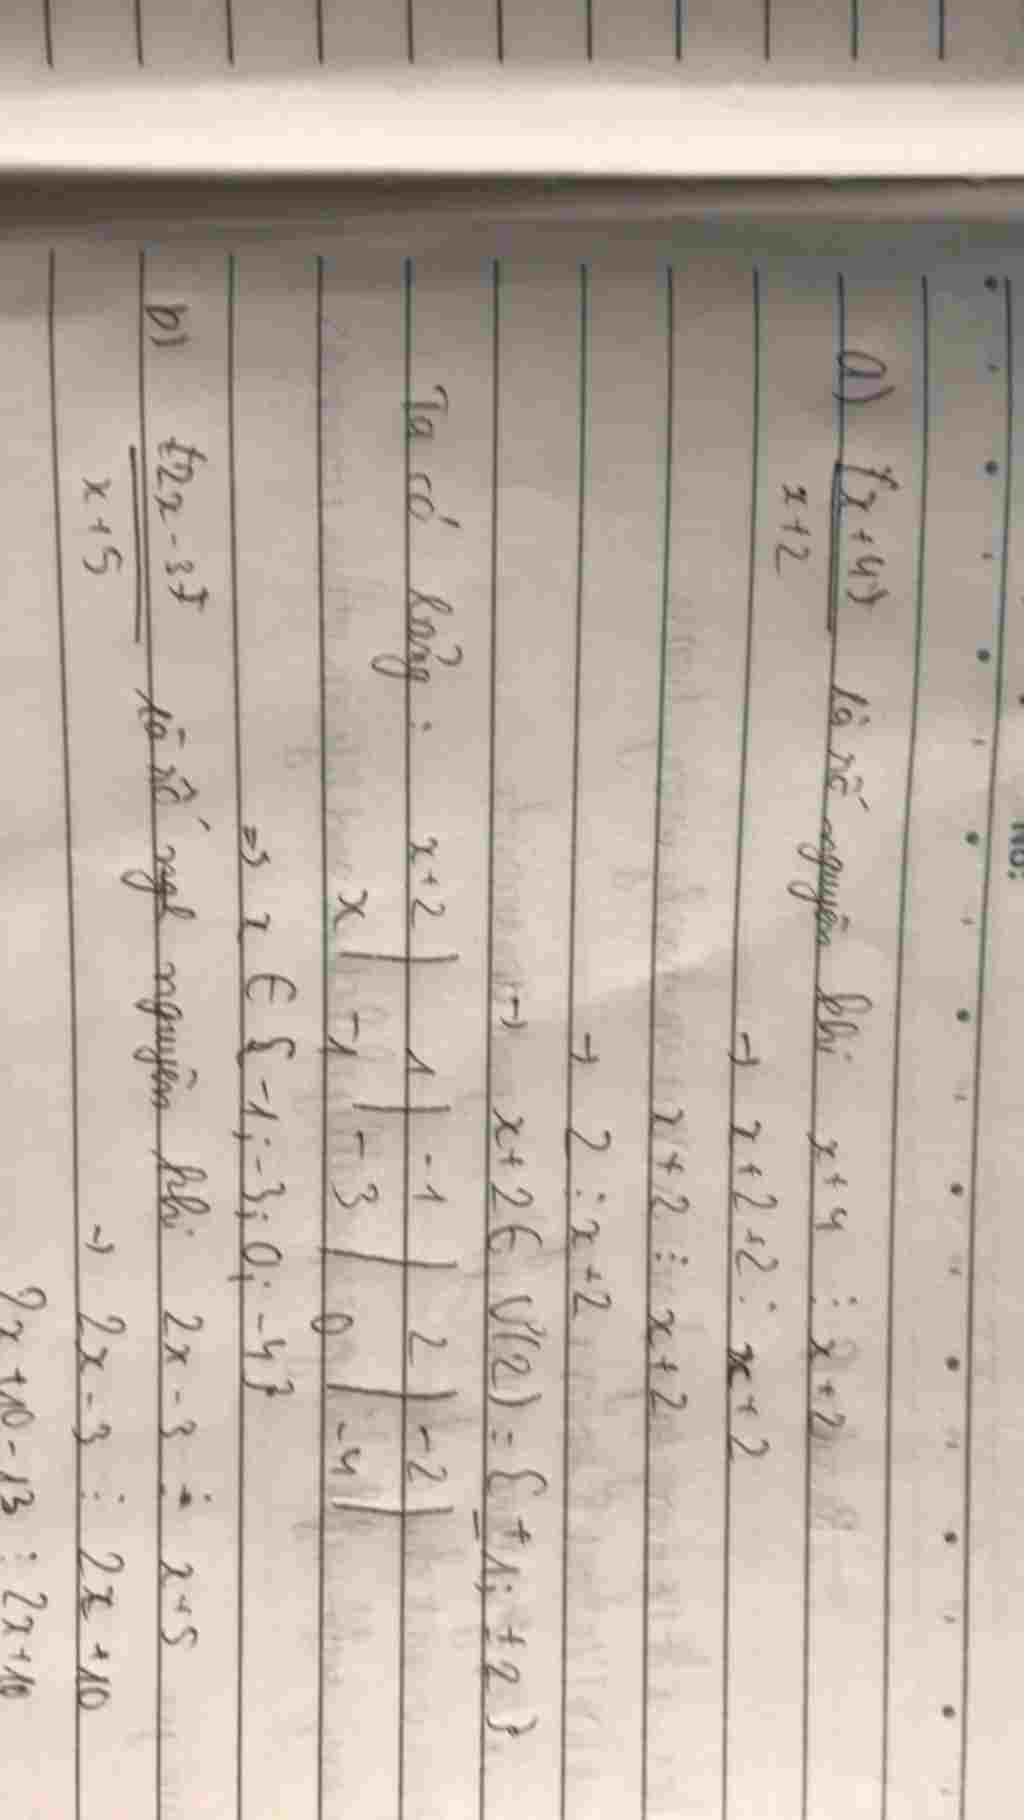 No:
a) (x+4) là số nguyên khi x+4 ⋮ x+2
x+2
→ x+2+2 ⋮ x+2
x+2 ⋮ x+2
→ 2 ⋮ x+2
→ x+2 ∈ Ư(2) = {±1; ±2}
Ta có bảng: x+2 | 1 | -1 | 2 | -2 |
x | -1 | -3 | 0 | -4 |
=> x ∈ {-1; -3; 0; -4}
b) 2x-3 là số nguyên khi 2x-3 ⋮ x+5
x+5
→ 2x-3 ⋮ 2x+10
2x+10-13 ⋮ 2x+10